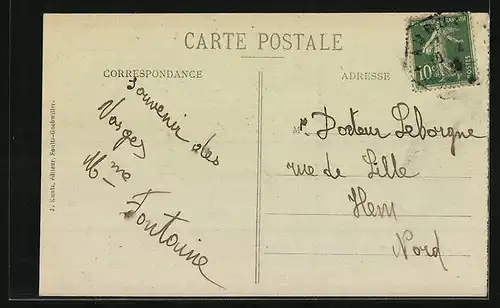 CARTE POSTALE
CORRESPONDANCE
ADRESSE
10c
Souvenir des
Vosges
Mme Fontaine
Mr Docteur Leborgne
rue de Lille
Hem
Nord
J. Kuntz, éditeur, Soultz-Guebwiller.